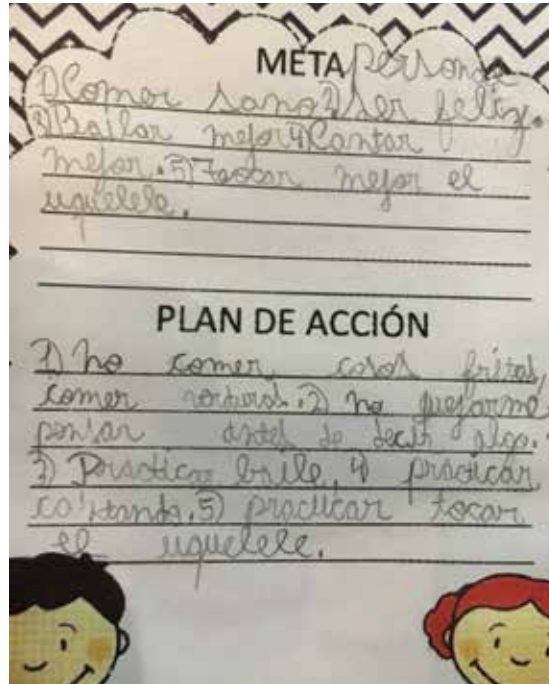 META personal
1) Comer sano 2) Ser feliz.
3) Bailar mejor 4) Cantar
mejor. 5) Tocar mejor el
uquelele.
PLAN DE ACCIÓN
1) no comer cosas fritas,
comer verduras. 2) no quejarme
pensar antes de decir algo.
3) Practicar baile, 4) practicar
cantando. 5) practicar tocar
el uquelele.